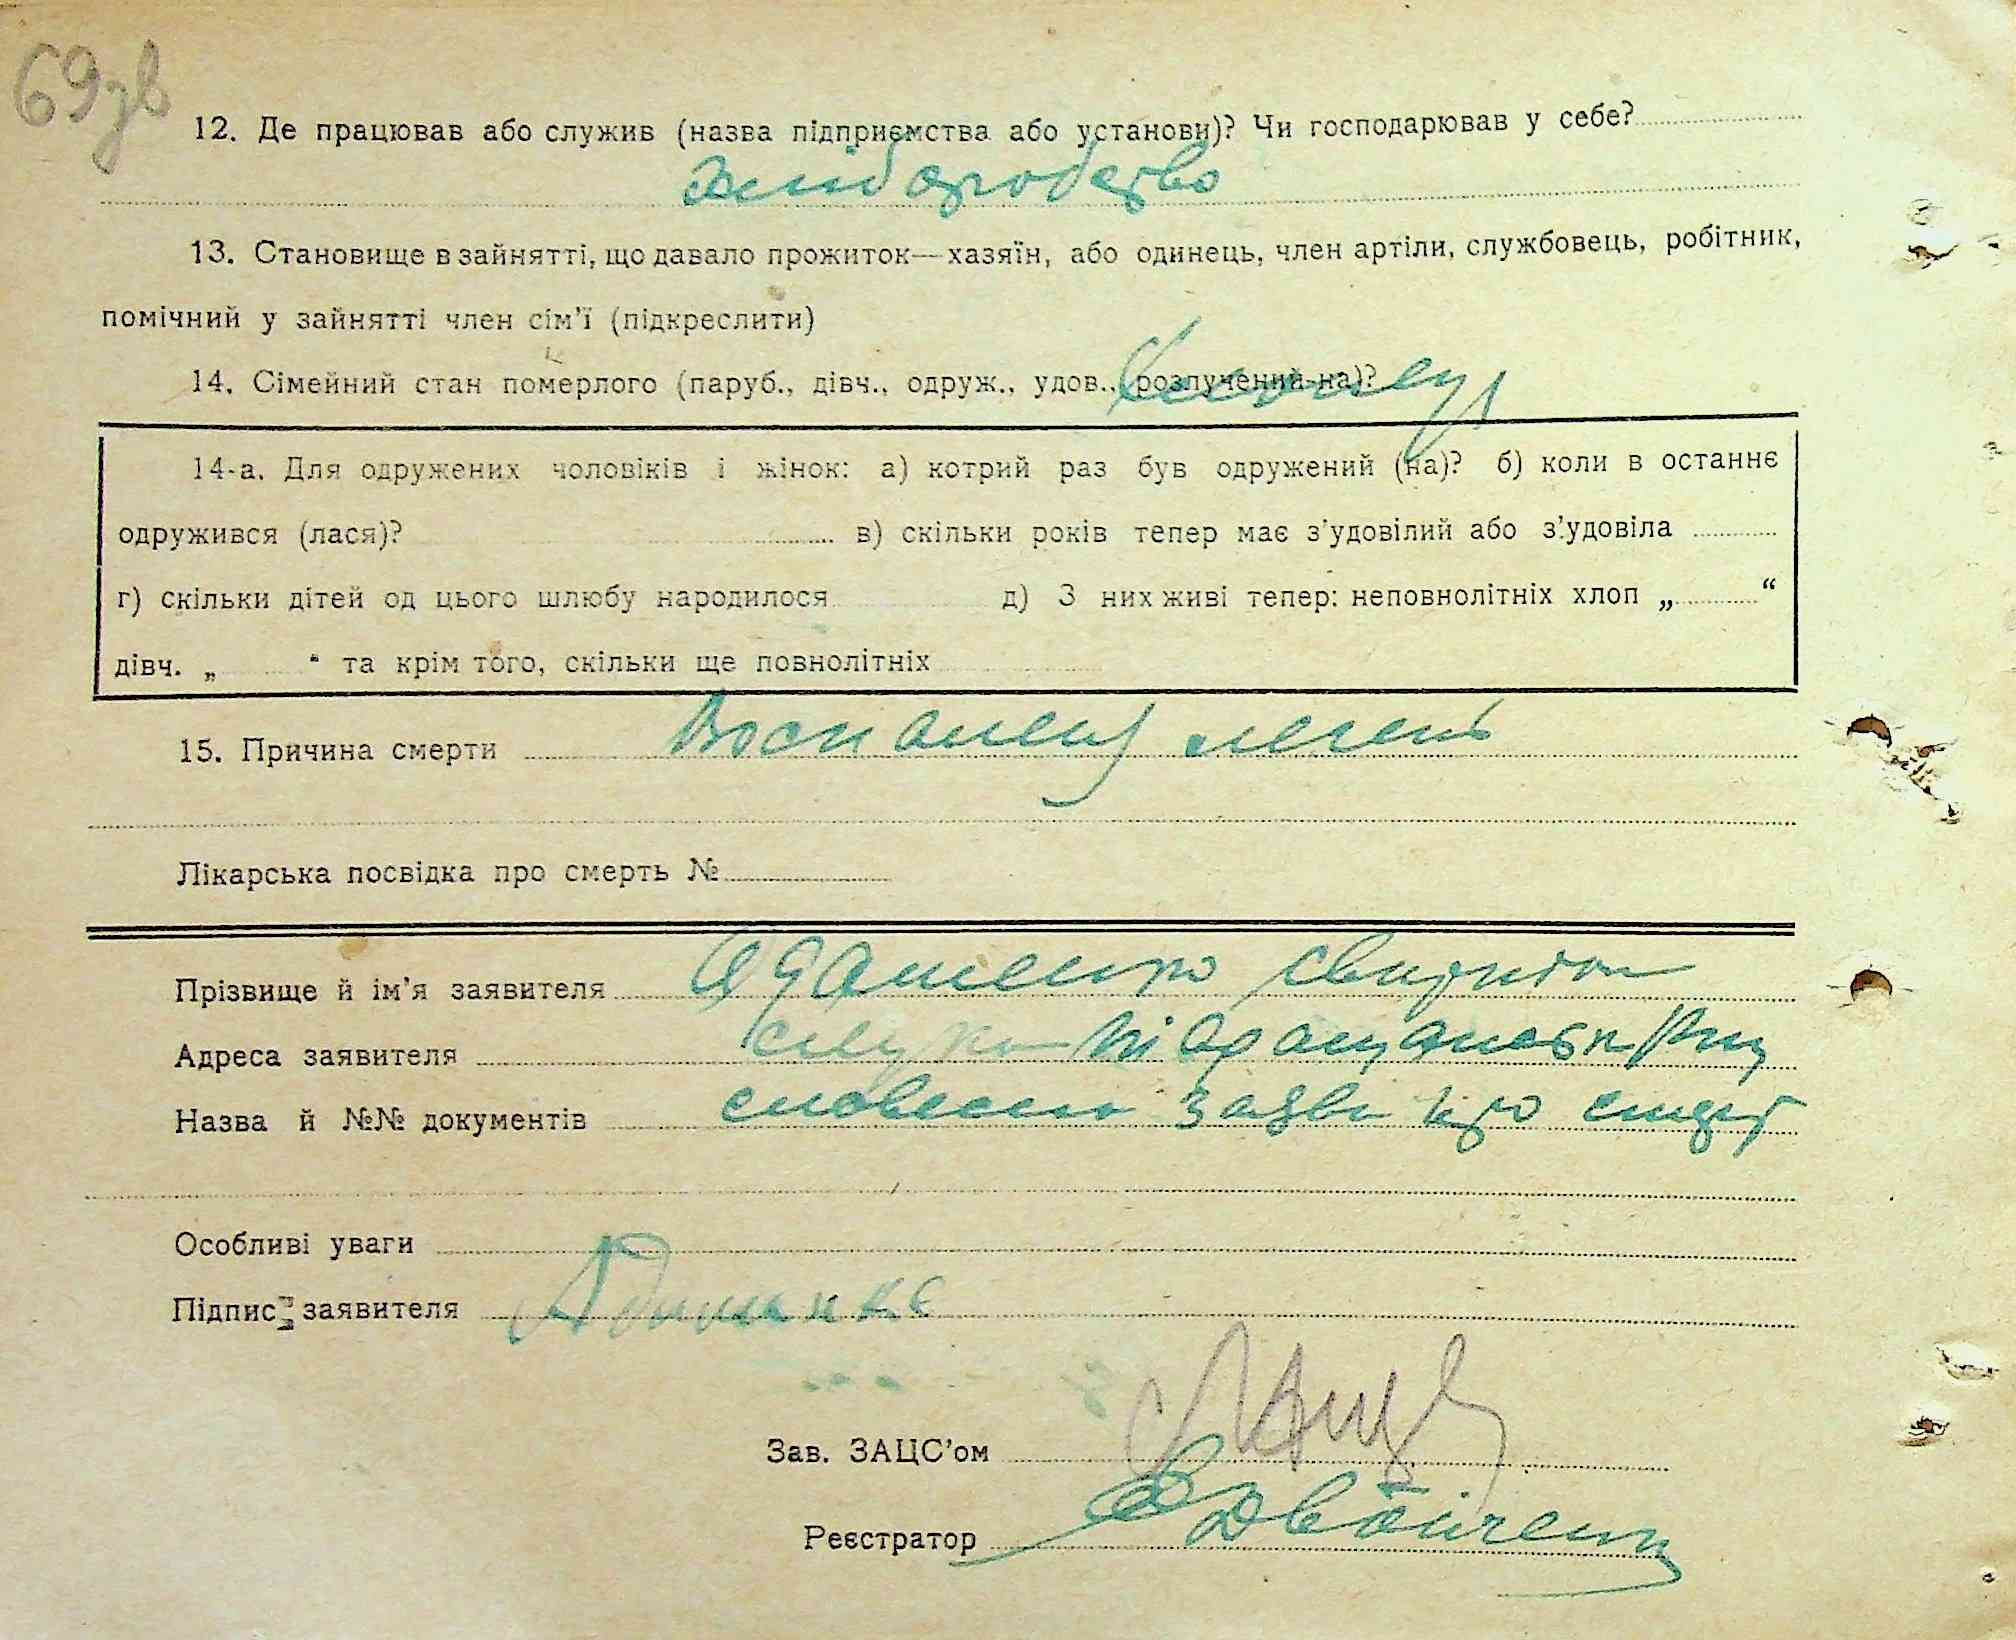 69зв
12. Де працював або служив (назва підприємства або установи)? Чи господарював у себе?
хліборобство
13. Становище в зайнятті, що давало прожиток—хазяїн, або одинець, член артіли, службовець, робітник,
помічний у зайнятті член сім'ї (підкреслити)
14. Сімейний стан померлого (паруб., дівч., одруж., удов., розлучений-на)?
14-а. Для одружених чоловіків і жінок: а) котрий раз був одружений (на)? б) коли в останнє
одружився (лася)? в) скільки років тепер має з'удовілий або з'удовіла
г) скільки дітей од цього шлюбу народилося д) З них живі тепер: неповнолітніх хлоп „ “
дівч. „ “ та крім того, скільки ще повнолітніх
15. Причина смерти Воспаленя легень
Лікарська посвідка про смерть №
Прізвище й ім'я заявителя Адаменко Свиридон
Адреса заявителя
Назва й №№ документів словесна заява про смерт
Особливі уваги
Підпис заявителя Адаменко
Зав. ЗАЦС'ом
Реєстратор